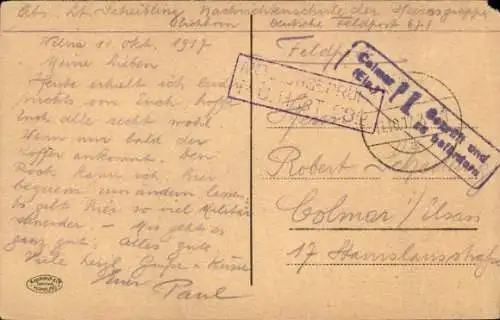 Abs. Lt. Scheibling Nachrichtenschule der Heeresgruppe
Eichhorn Deutsche Feldpost 671
Wilna 11. Okt. 1917
Meine Lieben
Heute erhielt ich
nichts von Euch, hoffe
Euch alle recht wohl
Wenn nur bald der
Koffer ankommt. Den
Rock kann ich hier
bequem ändern lassen,
es gibt hier so viel Militär
schneider. Mir geht es
ganz gut. Alles gute
Viele herzl. Grüße u. Küsse
Euer Paul
Feldpost
Colmar
(Els.)
Geprüft und
zu befördern
Herrn
Robert
Colmar / Elsass
17 Stanislausstraße